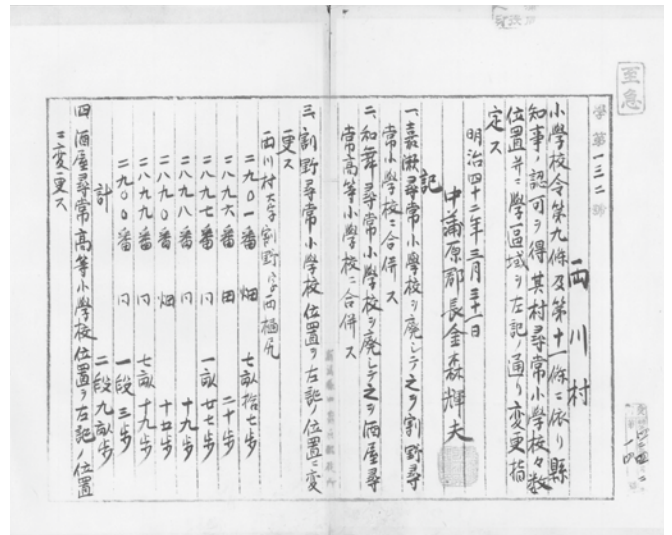 至急
学第一三二号
両川村
小學校令第九條及第十一條ニ依リ縣
知事ノ認可ヲ得其村尋常小學校々数
位置并ニ學區域ヲ左記ノ通リ変更指
定ス
明治四十二年三月三十一日
中蒲原郡長金森輝夫
記
一、嘉瀬尋常小學校ヲ廃シテ之ヲ割野尋
常小學校ニ合併ス
二、和舞尋常小學校ヲ廃シテ之ヲ酒屋尋
常高等小學校ニ合併ス
三、割野尋常小學校位置ヲ左記ノ位置ニ変
更ス
両川村大字割野字西樋尻
二九〇一番 畑 七畝拾七歩
二八九六番 田 二十歩
二八九七番 〃 一畝廿七歩
二八九八番 〃 十九歩
二八九〇番 畑 十五歩
二八九九番 〃 七畝十九歩
二九〇〇番 〃 一段三歩
計 二段九畝歩
四、酒屋尋常高等小學校位置ヲ左記ノ位置
ニ変更ス